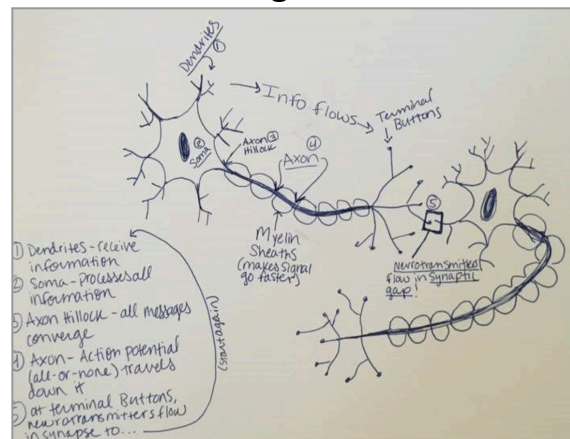 Dendrites
①
→ Info flows →
Terminal
Buttons
②
Soma
Axon ③
Hillock
④
Axon
Myelin
Sheaths
(makes signal
go faster)
⑤
Neurotransmitters
flow in Synaptic
gap!
① Dendrites - receive
information
② Soma - Processes all
information
③ Axon Hillock - all messages
converge
④ Axon - Action potential
(all-or-none) travels
down it
⑤ at terminal Buttons,
neurotransmitters flow
in synapse to...
(start again)